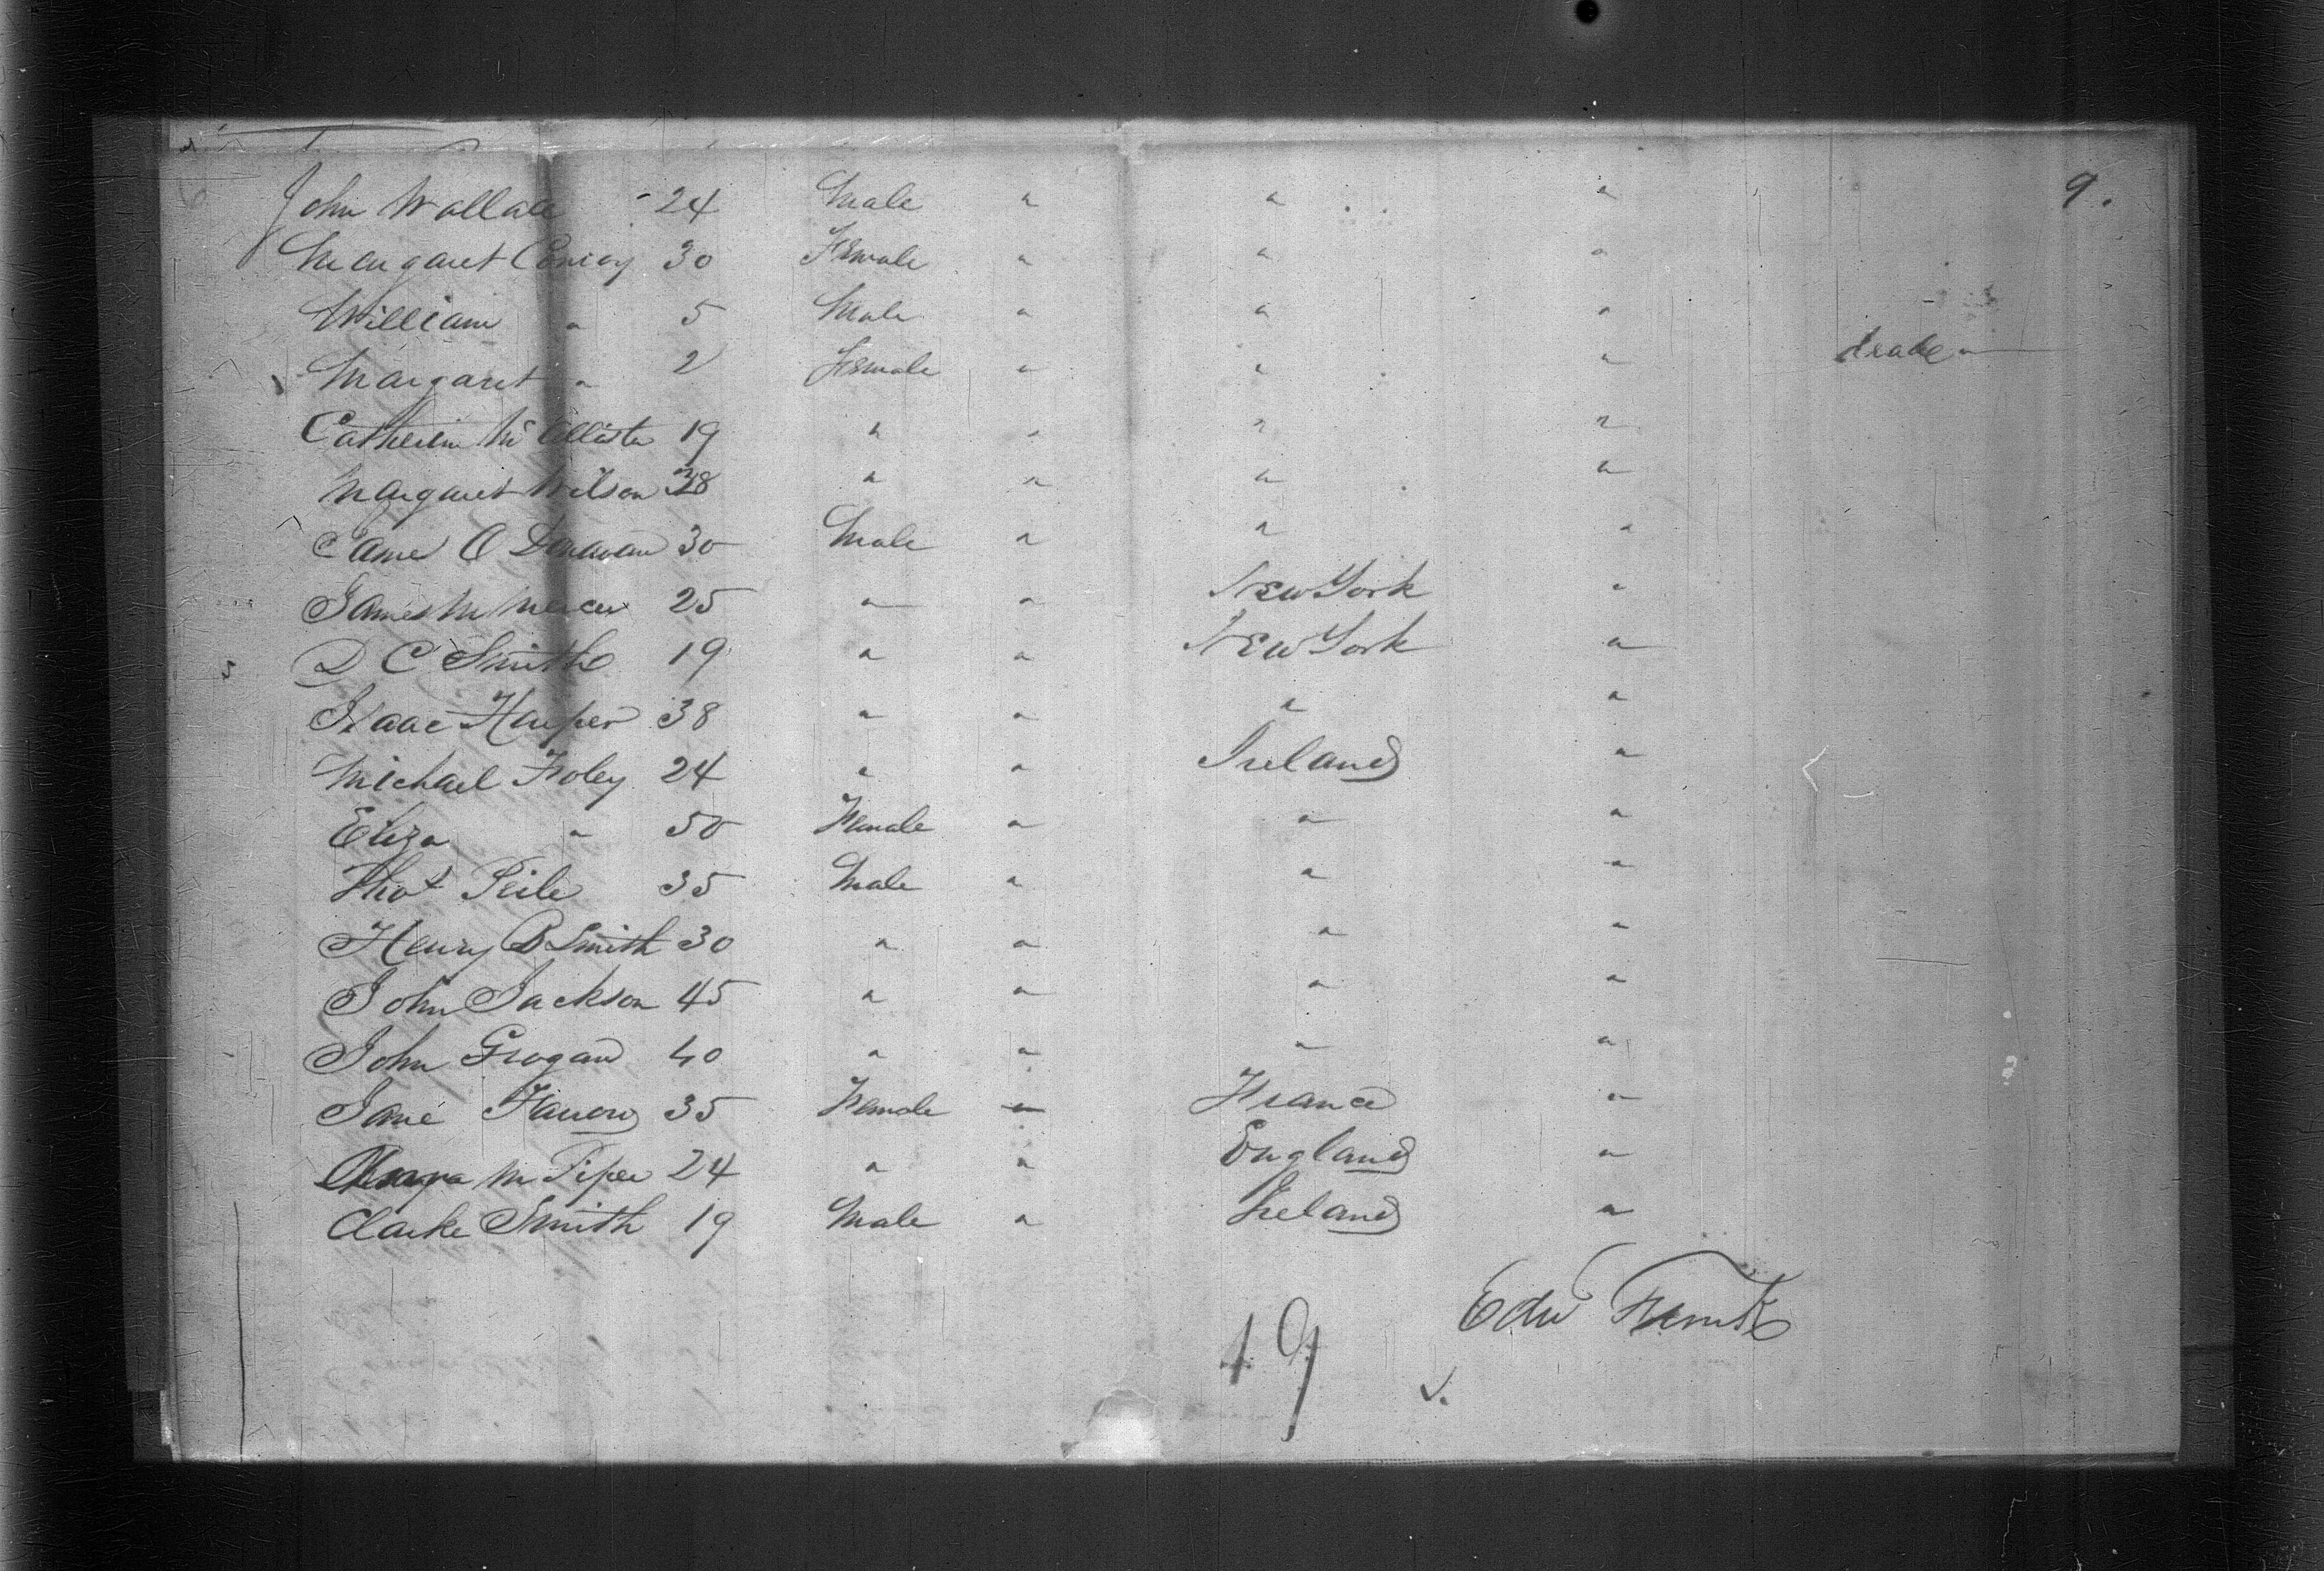 9.
John Wallace 24 Male " " "
Margaret Conroy 30 Female " " "
William " 5 Male " " "
Margaret " 2 Female " " "
Catherine McAllister 19 " " " "
Margaret Wilson 38 " " " "
James O Donavan 30 Male " " "
James M Mercer 25 " " New York "
D C Smith 19 " " New York "
Isaac Harper 38 " " " "
Michael Foley 24 " " Ireland "
Eliza " 50 Female " " "
Thos 35 Male " " "
Henry B Smith 30 " " " "
John Jackson 45 " " " "
John Grogan 40 " " " "
Jane 35 Female " France "
M Piper 24 " " England "
Clarke Smith 19 Male " Ireland "
Edw
19